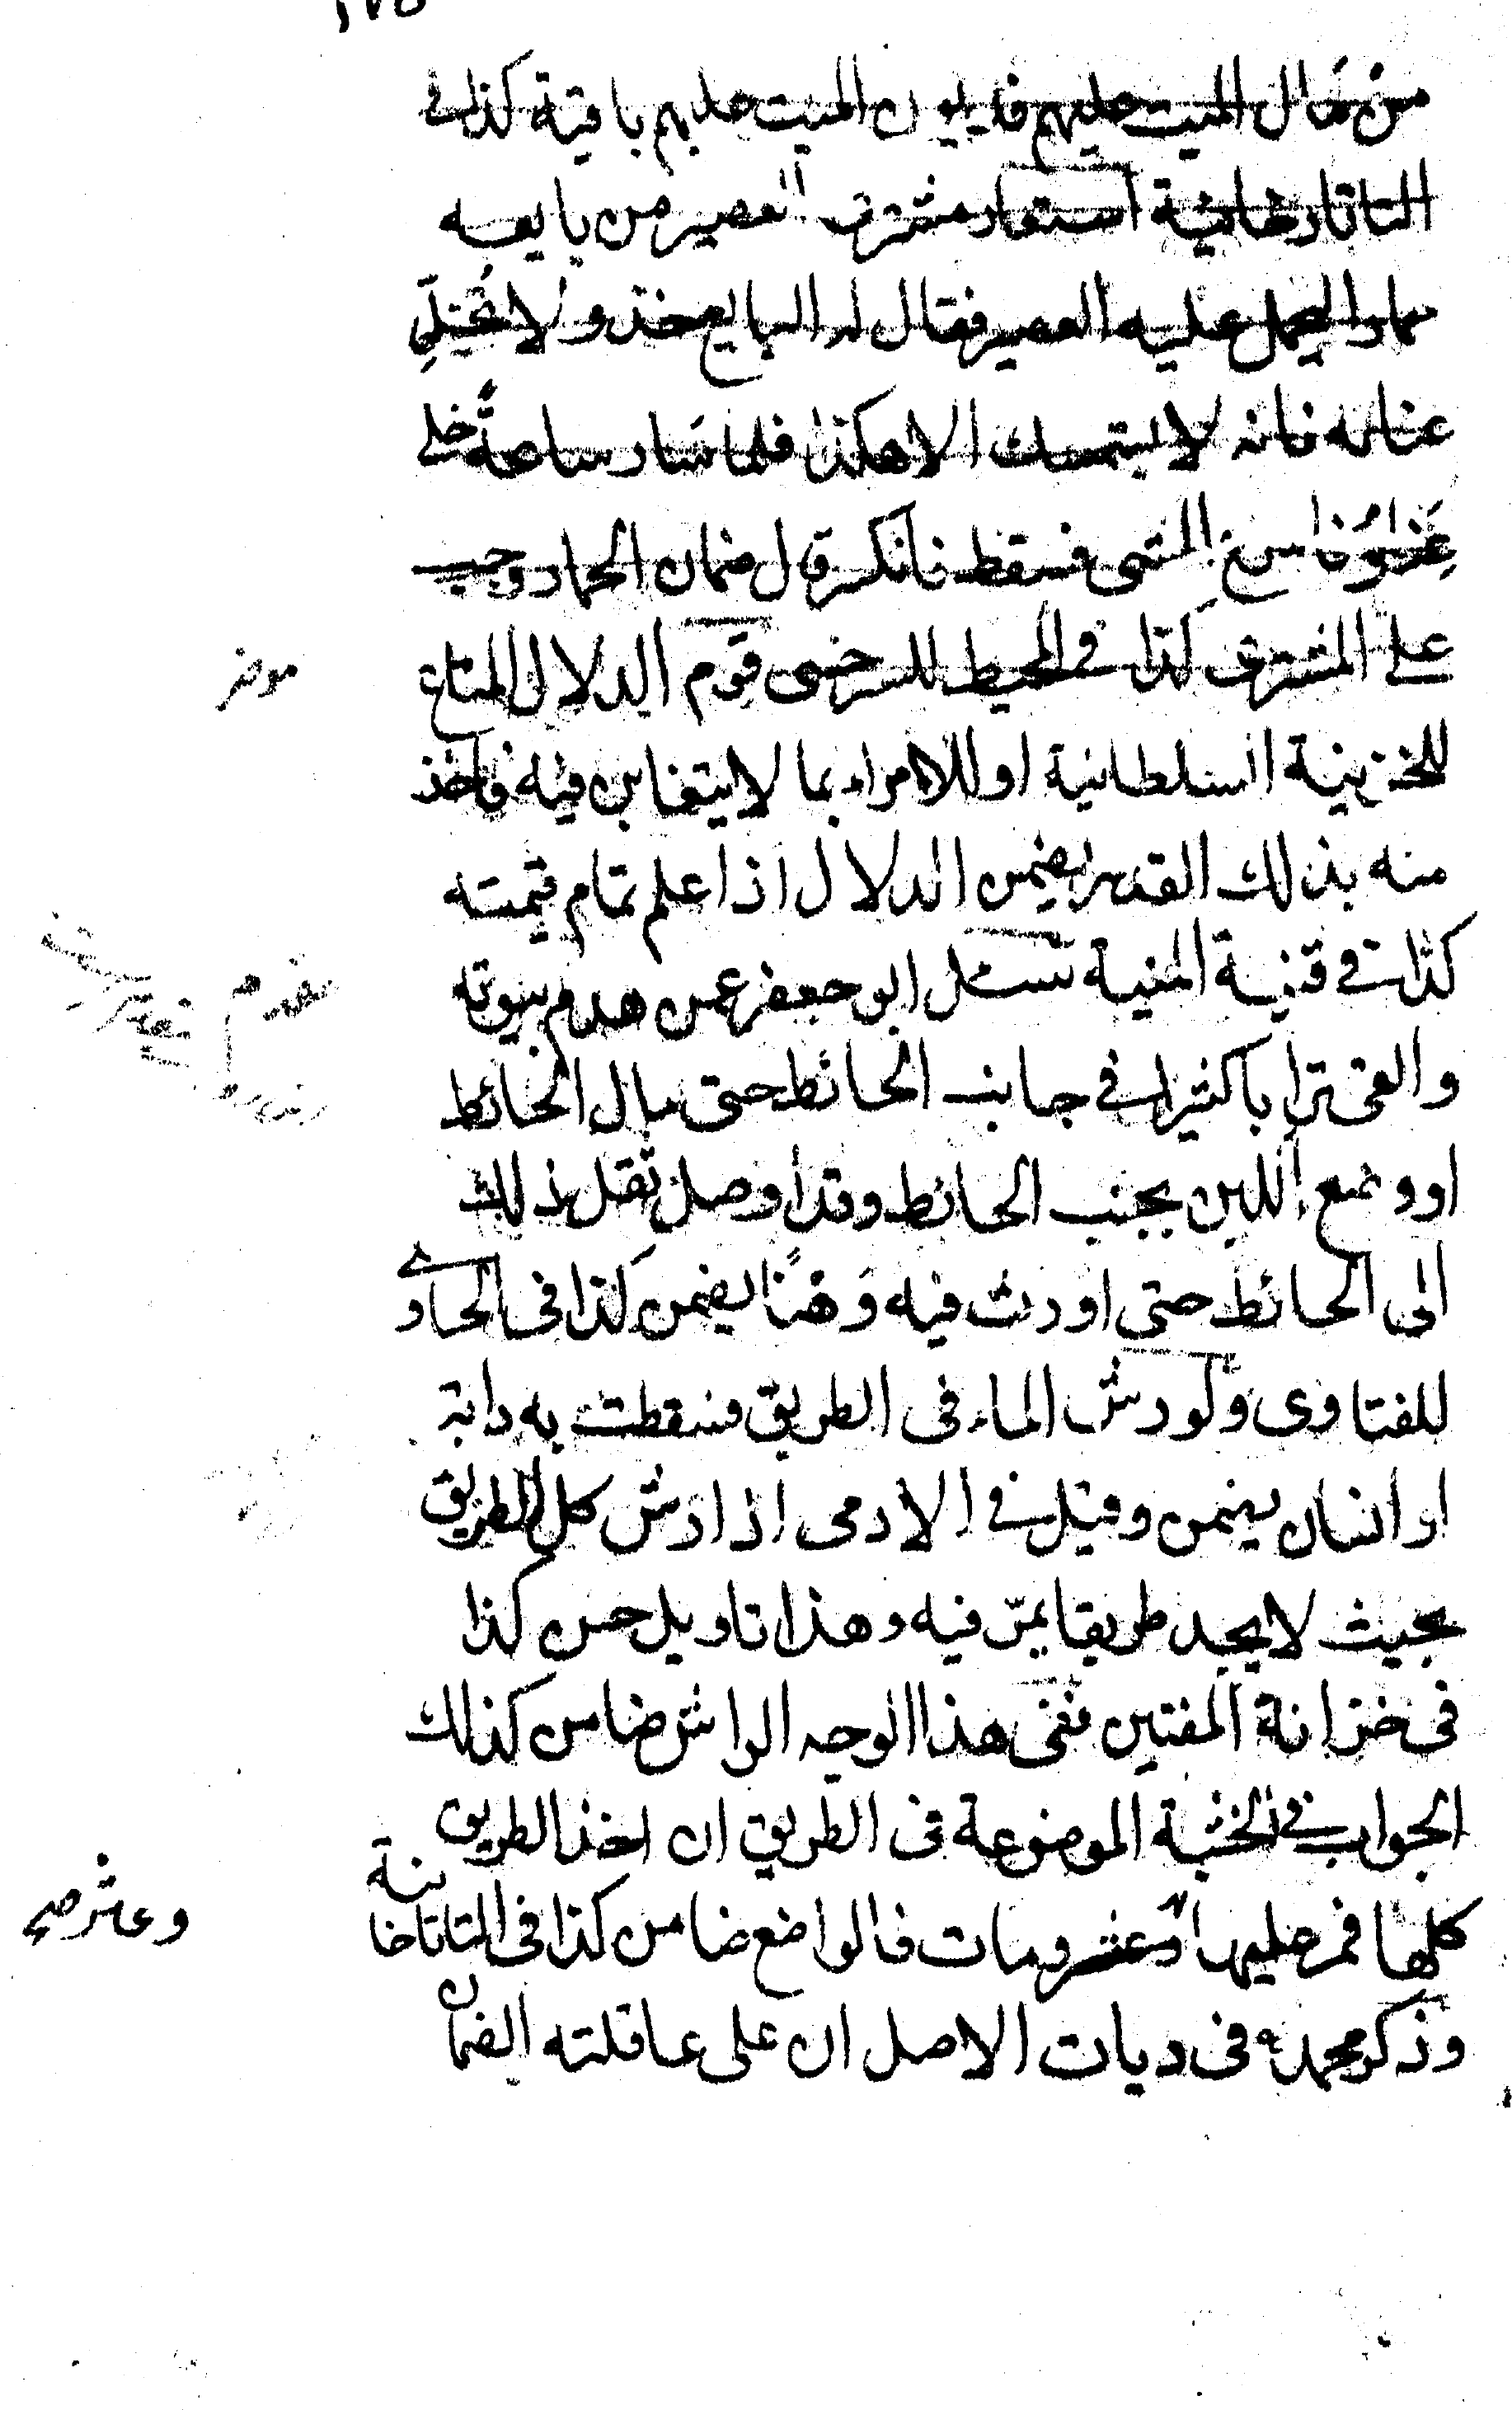 من مال الميت عليهم فديون الميت عليهم باقية كذا في
التاتارخانية استعار مشتري العصير من بايعه
حمارا ليحمل عليه العصير فقال له البايع خذ ولا تخلّ
عنانه فانه لا يستمسك الا هكذا فلما سار ساعة خلي
في المشي فسقط فانكسر قال ضمان الحمار وجب
على المشتري كذا في المحيط للسرخسي قوم الدلال المتاع
للخزينة السلطانية او للامراء بما لا يتغابن فيه فاخذ
منه بذلك القدر يضمن الدلال اذا علم تمام قيمته
كذا في قنية المنية سئل ابو جعفر عمن هدم بيوته
والقى ترابا كثيرا في جانب الحائط حتى مال الحائط
او وضع اللبن بجنب الحائط وقد اوصل ثقل ذلك
الى الحائط حتى اورث فيه وَهْنًا يضمن كذا في الحاوي
للفتاوى ولو رش الماء في الطريق فسقطت به دابة
او انسان يضمن وقيل في الادمي اذا رش كل الطريق
بحيث لا يجد طريقا يمرّ فيه وهذا تاويل حسن كذا
في خزانة المفتين ففي هذا الوجه الراش ضامن كذلك
الجواب في الخشبة الموضوعة في الطريق ان اخذ الطريق
كلها فمر عليها وعثر ومات فالواضع ضامن كذا في التاتاخانية
وعثر صح
وذكر محمد في ديات الاصل ان على عاقلته الضمان